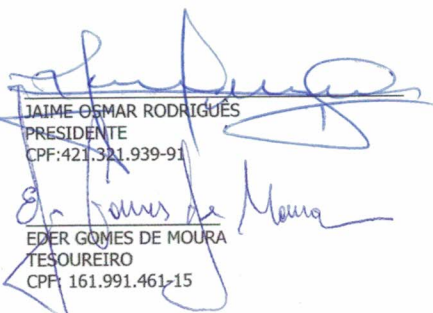 JAIME OSMAR RODRIGUÊS
PRESIDENTE
CPF:421.321.939-91
Gomes de Moura
EDER GOMES DE MOURA
TESOUREIRO
CPF: 161.991.461-15